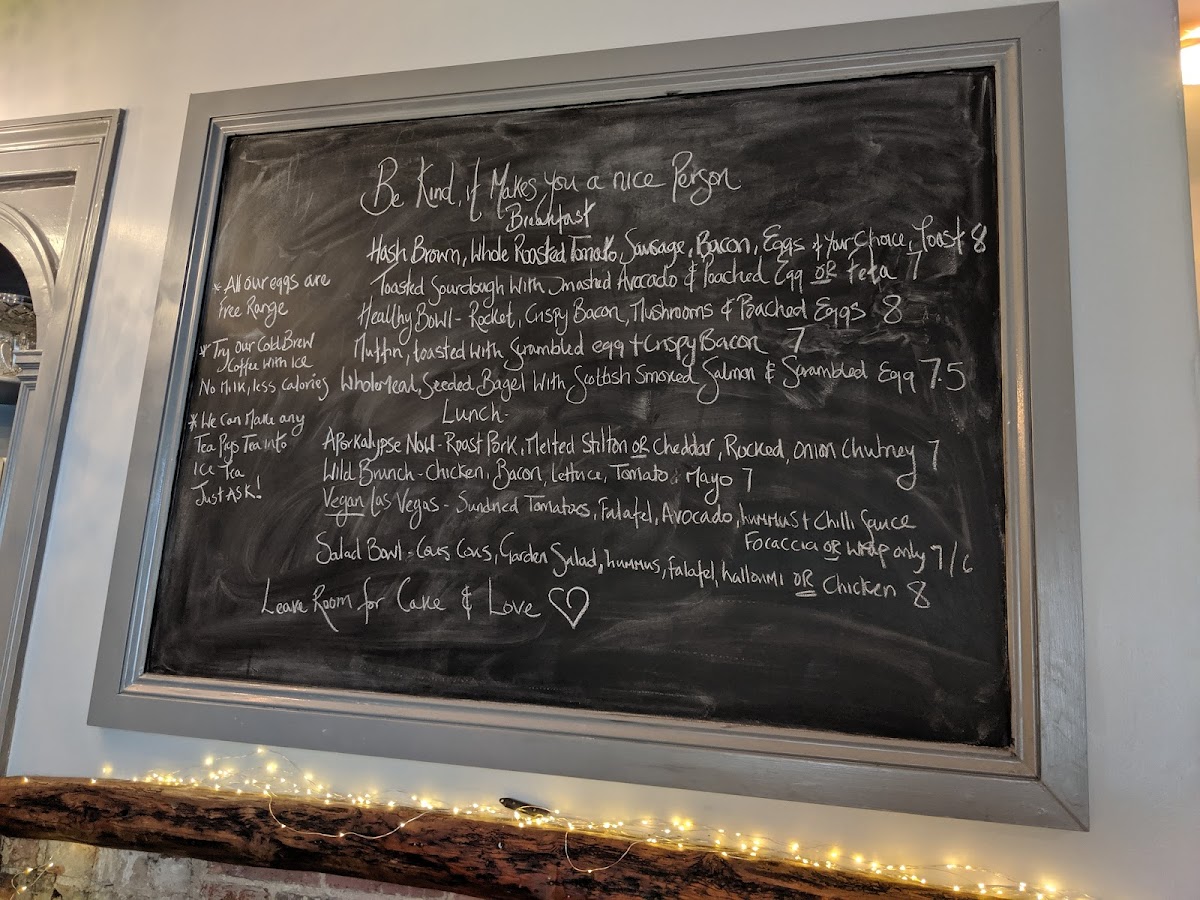 Be Kind, it Makes you a nice Person
Breakfast
Hash Brown, Whole Roasted Tomato, Sausage, Bacon, Eggs of Your Choice, Toast 8
Toasted Sourdough With Smashed Avocado & Poached Egg OR Feta 7
Healthy Bowl - Rocket, Crispy Bacon, Mushrooms & Poached Eggs 8
Muffin, toasted with Scrambled egg + Crispy Bacon 7
Wholemeal, Seeded, Bagel With Scottish Smoked Salmon & Scrambled Egg 7.5
Lunch -
Aporkalypse Now - Roast Pork, Melted Stilton OR Cheddar, Rocked, Onion Chutney 7
Wild Brunch - Chicken, Bacon, Lettuce, Tomato & Mayo 7
Vegan Las Vegas - Sundried Tomatoes, Falafel, Avocado, hummus + Chilli Sauce
Focaccia OR Wrap only 7/6
Salad Bowl - Cous Cous, Garden Salad, hummus, falafel, halloumi OR Chicken 8
Leave Room for Cake & Love
* All our eggs are
Free Range
* Try Our Cold Brew
Coffee With Ice
No Milk, less calories
* We Can Make any
Tea Pigs Tea into
Ice Tea
Just Ask!